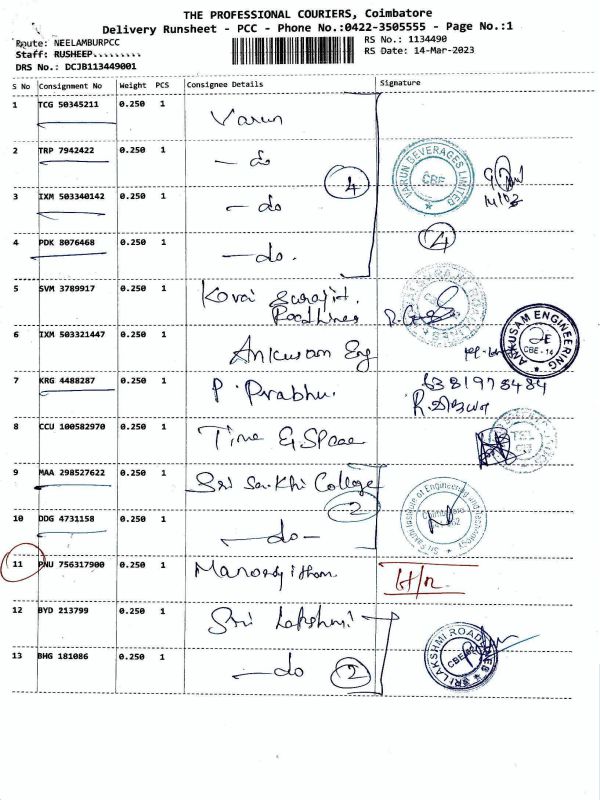 THE PROFESSIONAL COURIERS, Coimbatore
Delivery Runsheet - PCC - Phone No.:0422-3505555 - Page No.:1
Route: NEELAMBURPCC
RS No.: 1134490
Staff: RUSHEEP.........
RS Date: 14-Mar-2023
DRS No.: DCJB113449001
S No Consignment No Weight PCS Consignee Details Signature
1 TCG 50345211 0.250 1 Varun
2 TRP 7942422 0.250 1 — do
VARUN BEVERAGES LIMITED
CBE
4
3 IXM 503340142 0.250 1 — do
4 PDK 8076468 0.250 1 — do.
4
5 SVM 3789917 0.250 1 Kovai
Roadlines
6 IXM 503321447 0.250 1 Ankusam Eng
ANKUSAM ENGINEERING
CBE - 14
7 KRG 4488287 0.250 1 P. Prabhu.
8 CCU 100582970 0.250 1 Time & Space
9 MAA 298527622 0.250 1 Sri Sakthi College
2
Sri Sakthi Institute of Engineering and Technology
Coimbatore
10 DDG 4731158 0.250 1 — do-
11 PNU 756317900 0.250 1
12 BYD 213799 0.250 1 Sri Lakshmi
SRI LAKSHMI ROADLINES
13 BHG 181086 0.250 1 — do
2